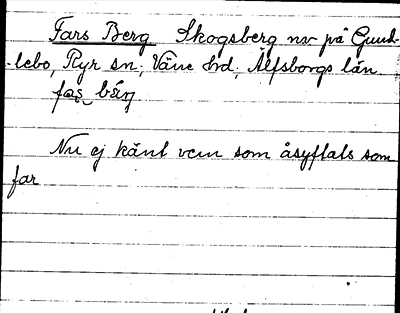 Fars Berg Skogsberg nv på Gund-
lebo, Ryr sn, Väne hd, Älfsborgs län.
Nu ej känt vem som åsyftats som
far